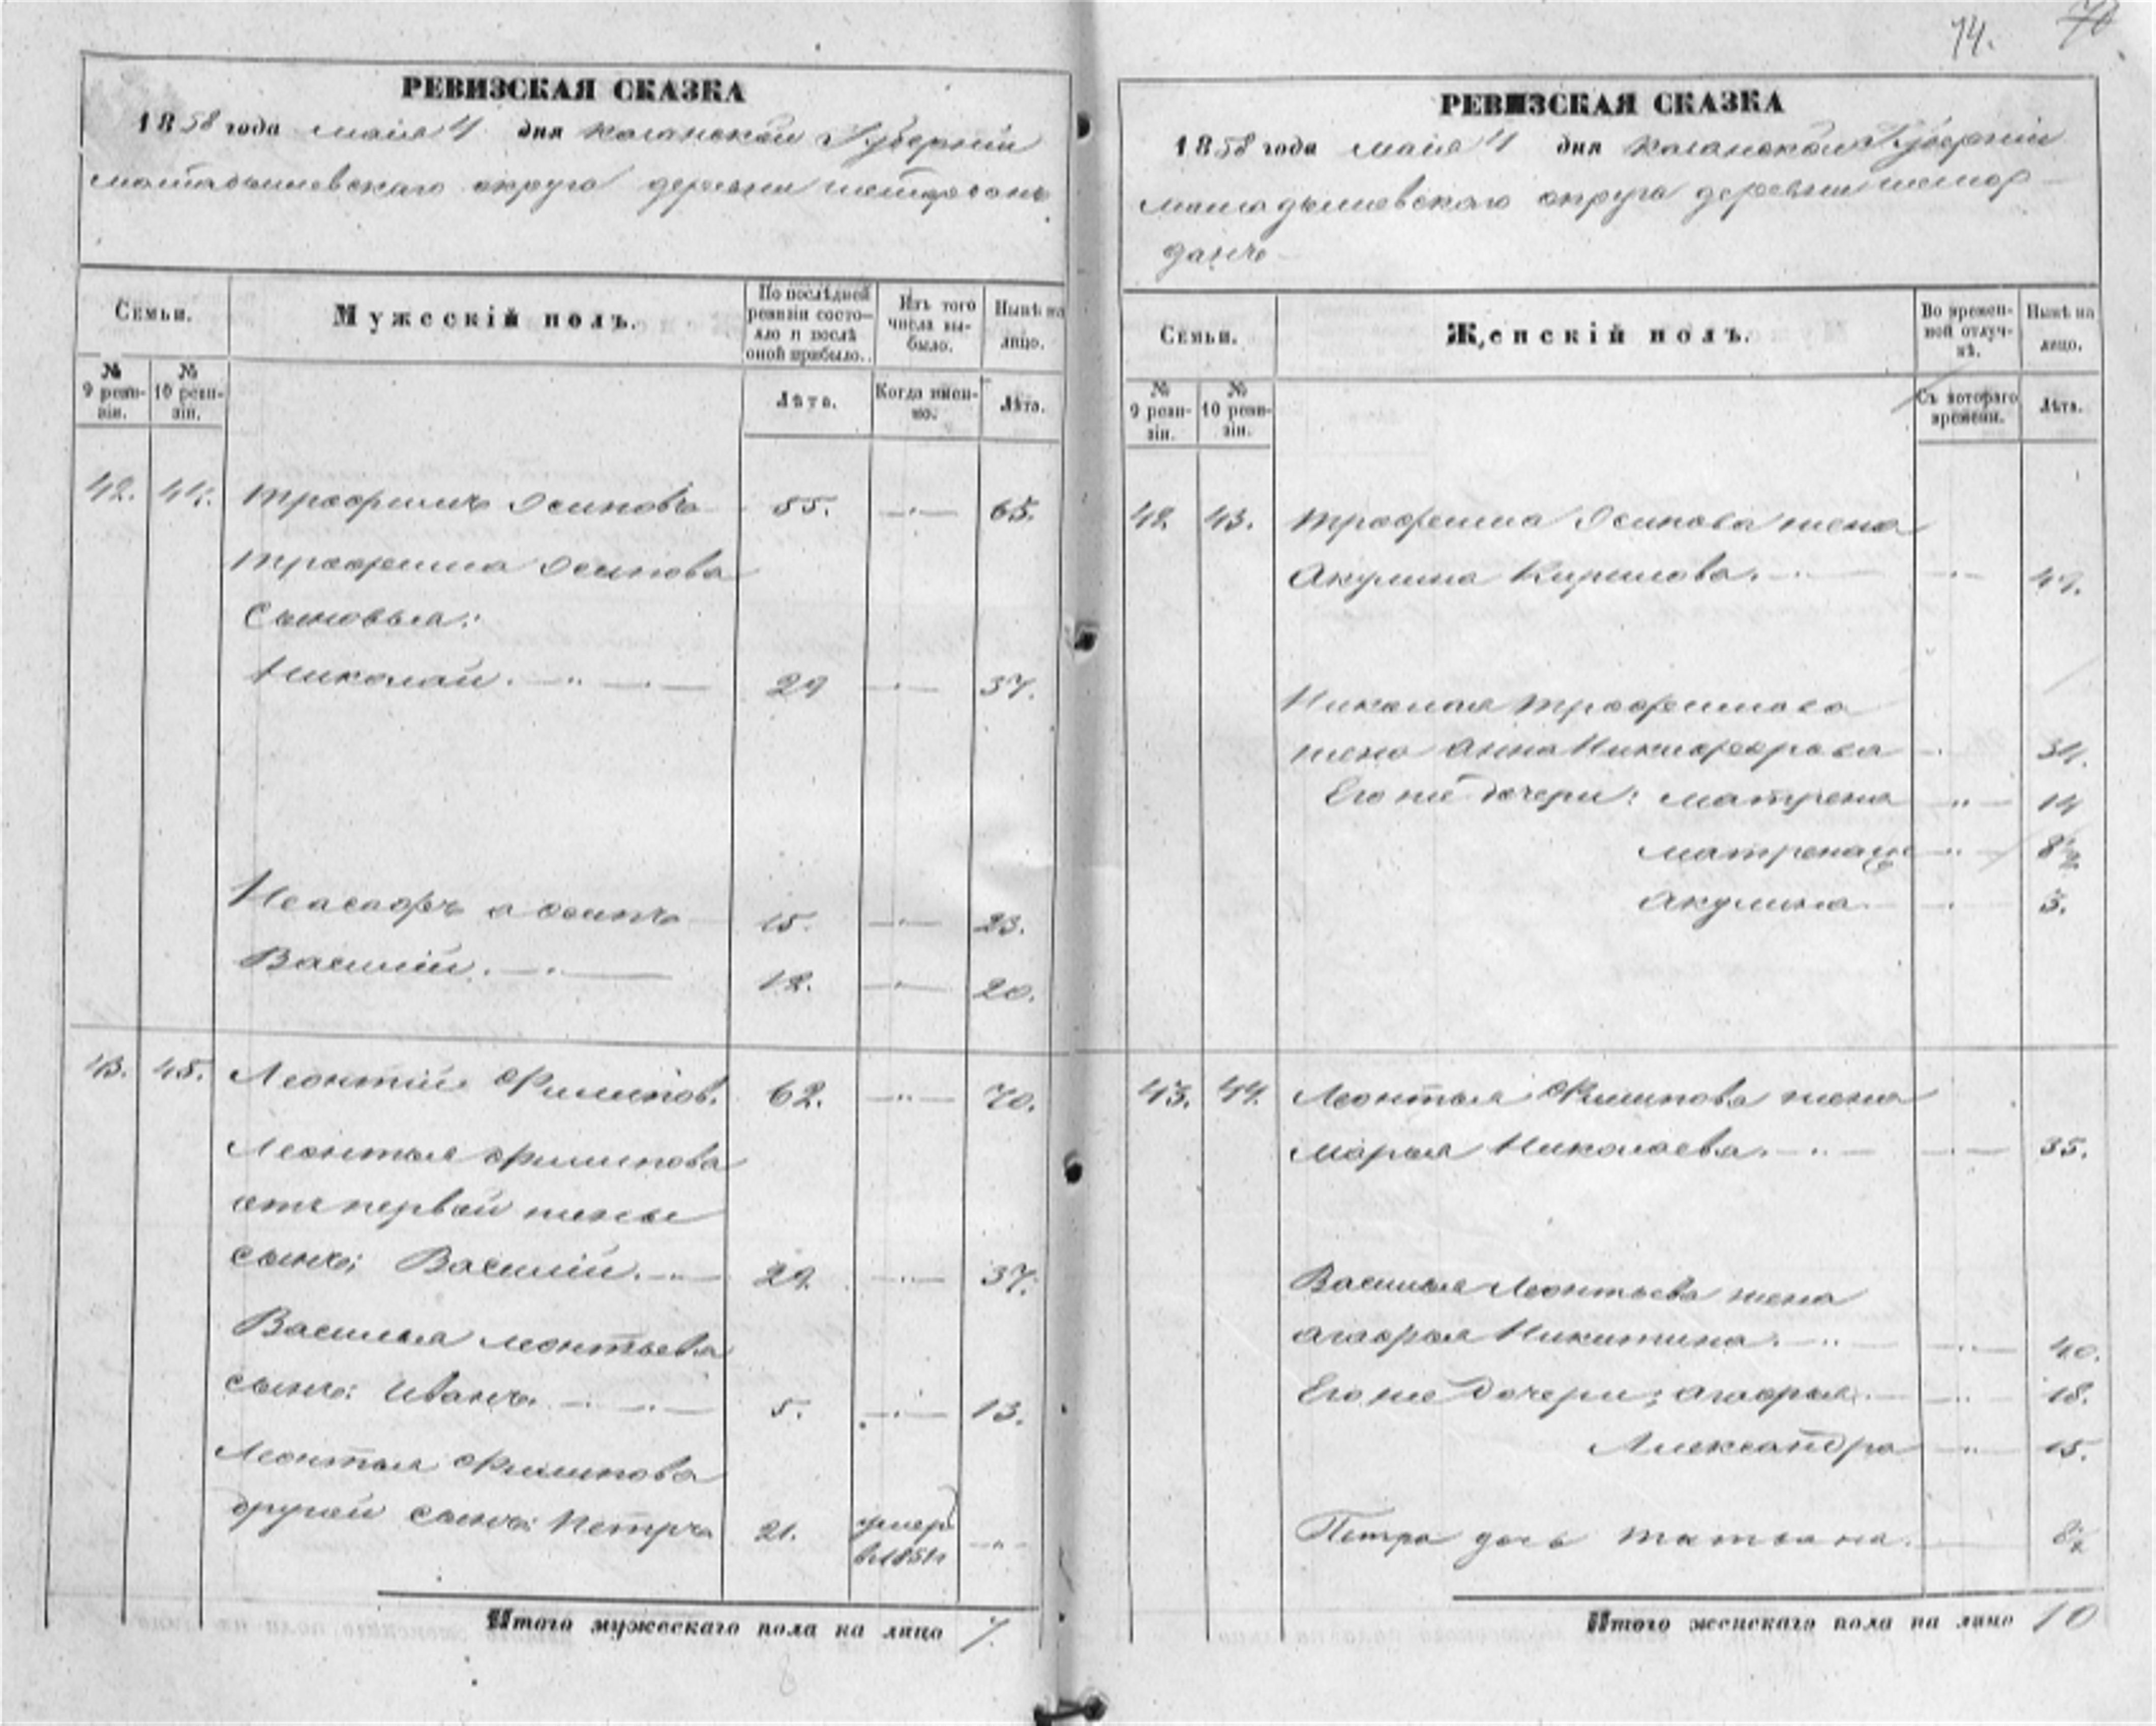 14. 70
РЕВИЗСКАЯ СКАЗКА
1858 года маія 4 дня казанской Губерніи
мамадышевскаго округа деревни
Семьи. Мужескій полъ. По послѣдней ревизіи состояло и послѣ оной прибыло. Изъ того числа выбыло. Нынѣ на лицо.
№ 9 ревизіи. № 10 ревизіи. Лѣта. Когда именно. Лѣта.
42. 44. трофимъ Осиповъ 55. 65.
трофима Осипова
Сыновья:
Николай. 29 37.
а осипъ 15. 23.
Василій. 12. 20.
43. 45. Леонтій Филипов. 62. 70.
Леонтья Филипова
отъ первой жены
сынъ: Василій. 29. 37.
Василья Леонтьева
сынъ: Иванъ. 5. 13.
Леонтья Филипова
другой сынъ: Петръ 21. умеръ
в 1851 г
Итого мужескаго пола на лицо 7.
РЕВИЗСКАЯ СКАЗКА
1858 года маія 4 дня казанской Губерніи
мамадышевскаго округа деревни шемор-
данъ
Семьи. Женскій полъ. Во временной отлучкѣ. Нынѣ на лицо.
№ 9 ревизіи. № 10 ревизіи. Съ котораго времени. Лѣта.
42. 43. трофима Осипова жена
Акулина Кирилова. 47.
Николая трофимова
жена Анна Никифорова 34.
Его же дочери: матрена 14
матрена
Акулина 3.
43. 44. Леонтья Филипова жена
Марья Николаева. 35.
Василья Леонтьева жена
агафья Никитина. 40.
Его же дочери: агафья. 18.
Александра 15.
Петра дочь татьяна.
Итого женскаго пола на лицо 10